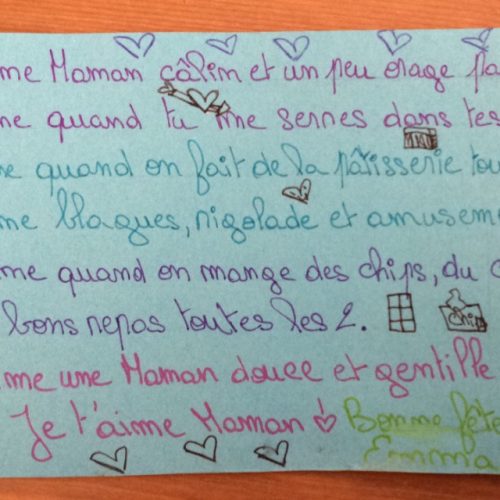 me Maman câlin et un peu orage pa
ne quand tu me serres dans tes
e quand on fait de la pâtisserie tou
me blagues, rigolade et amusem
me quand on mange des chips, du c
bons repas toutes les 2.
chips
me une Maman douce et gentille
Je t'aime Maman
Bonne fête
Emma